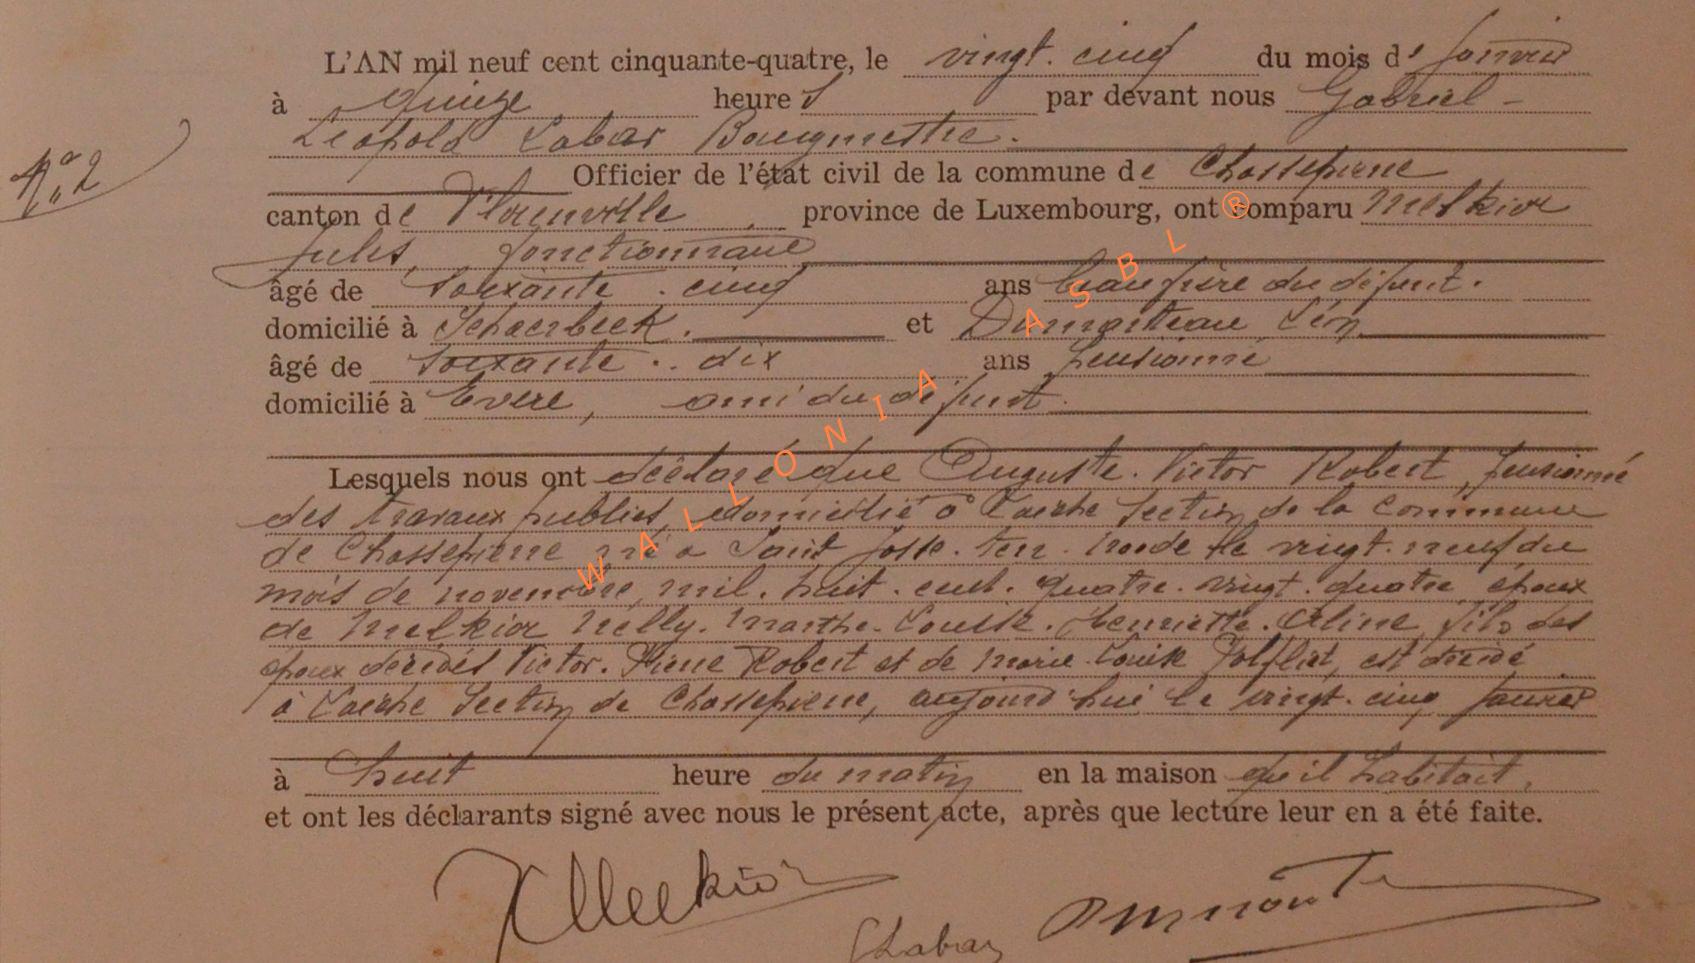 L'AN mil neuf cent cinquante-quatre, le vingt-cinq du mois d' Janvier
à quinze heures par devant nous Gabriel-
Léopold Labar Bourgmestre.
N° 2
Officier de l'état civil de la commune de Chassepierre
canton de Florenville, province de Luxembourg, ont comparu Melkior
Jules, fonctionnaire
âgé de soixante-cinq ans beau frère du défunt.
domicilié à Schaerbeek. et Dumonteau Léon
âgé de soixante-dix ans pensionné
domicilié à Evere, ami du défunt
Lesquels nous ont déclaré que Auguste-Victor Robert, pensionné
des travaux publics, domicilié à Laiche Section de la commune
de Chassepierre né à Saint Josse-ten-Noode le vingt-neuf du
mois de novembre, mil-huit-cent-quatre-vingt-quatre, époux
de Melkior Nelly-Marthe-Louise-Henriette-Céline, fils des
époux décédés Victor-Pierre Robert et de Marie-Louise, est décédé
à Laiche Section de Chassepierre, aujourd'hui le vingt-cinq janvier
à huit heure du matin en la maison qu'il habitait,
et ont les déclarants signé avec nous le présent acte, après que lecture leur en a été faite.
Melkior
GLabar
WALLONIA ASBL ®